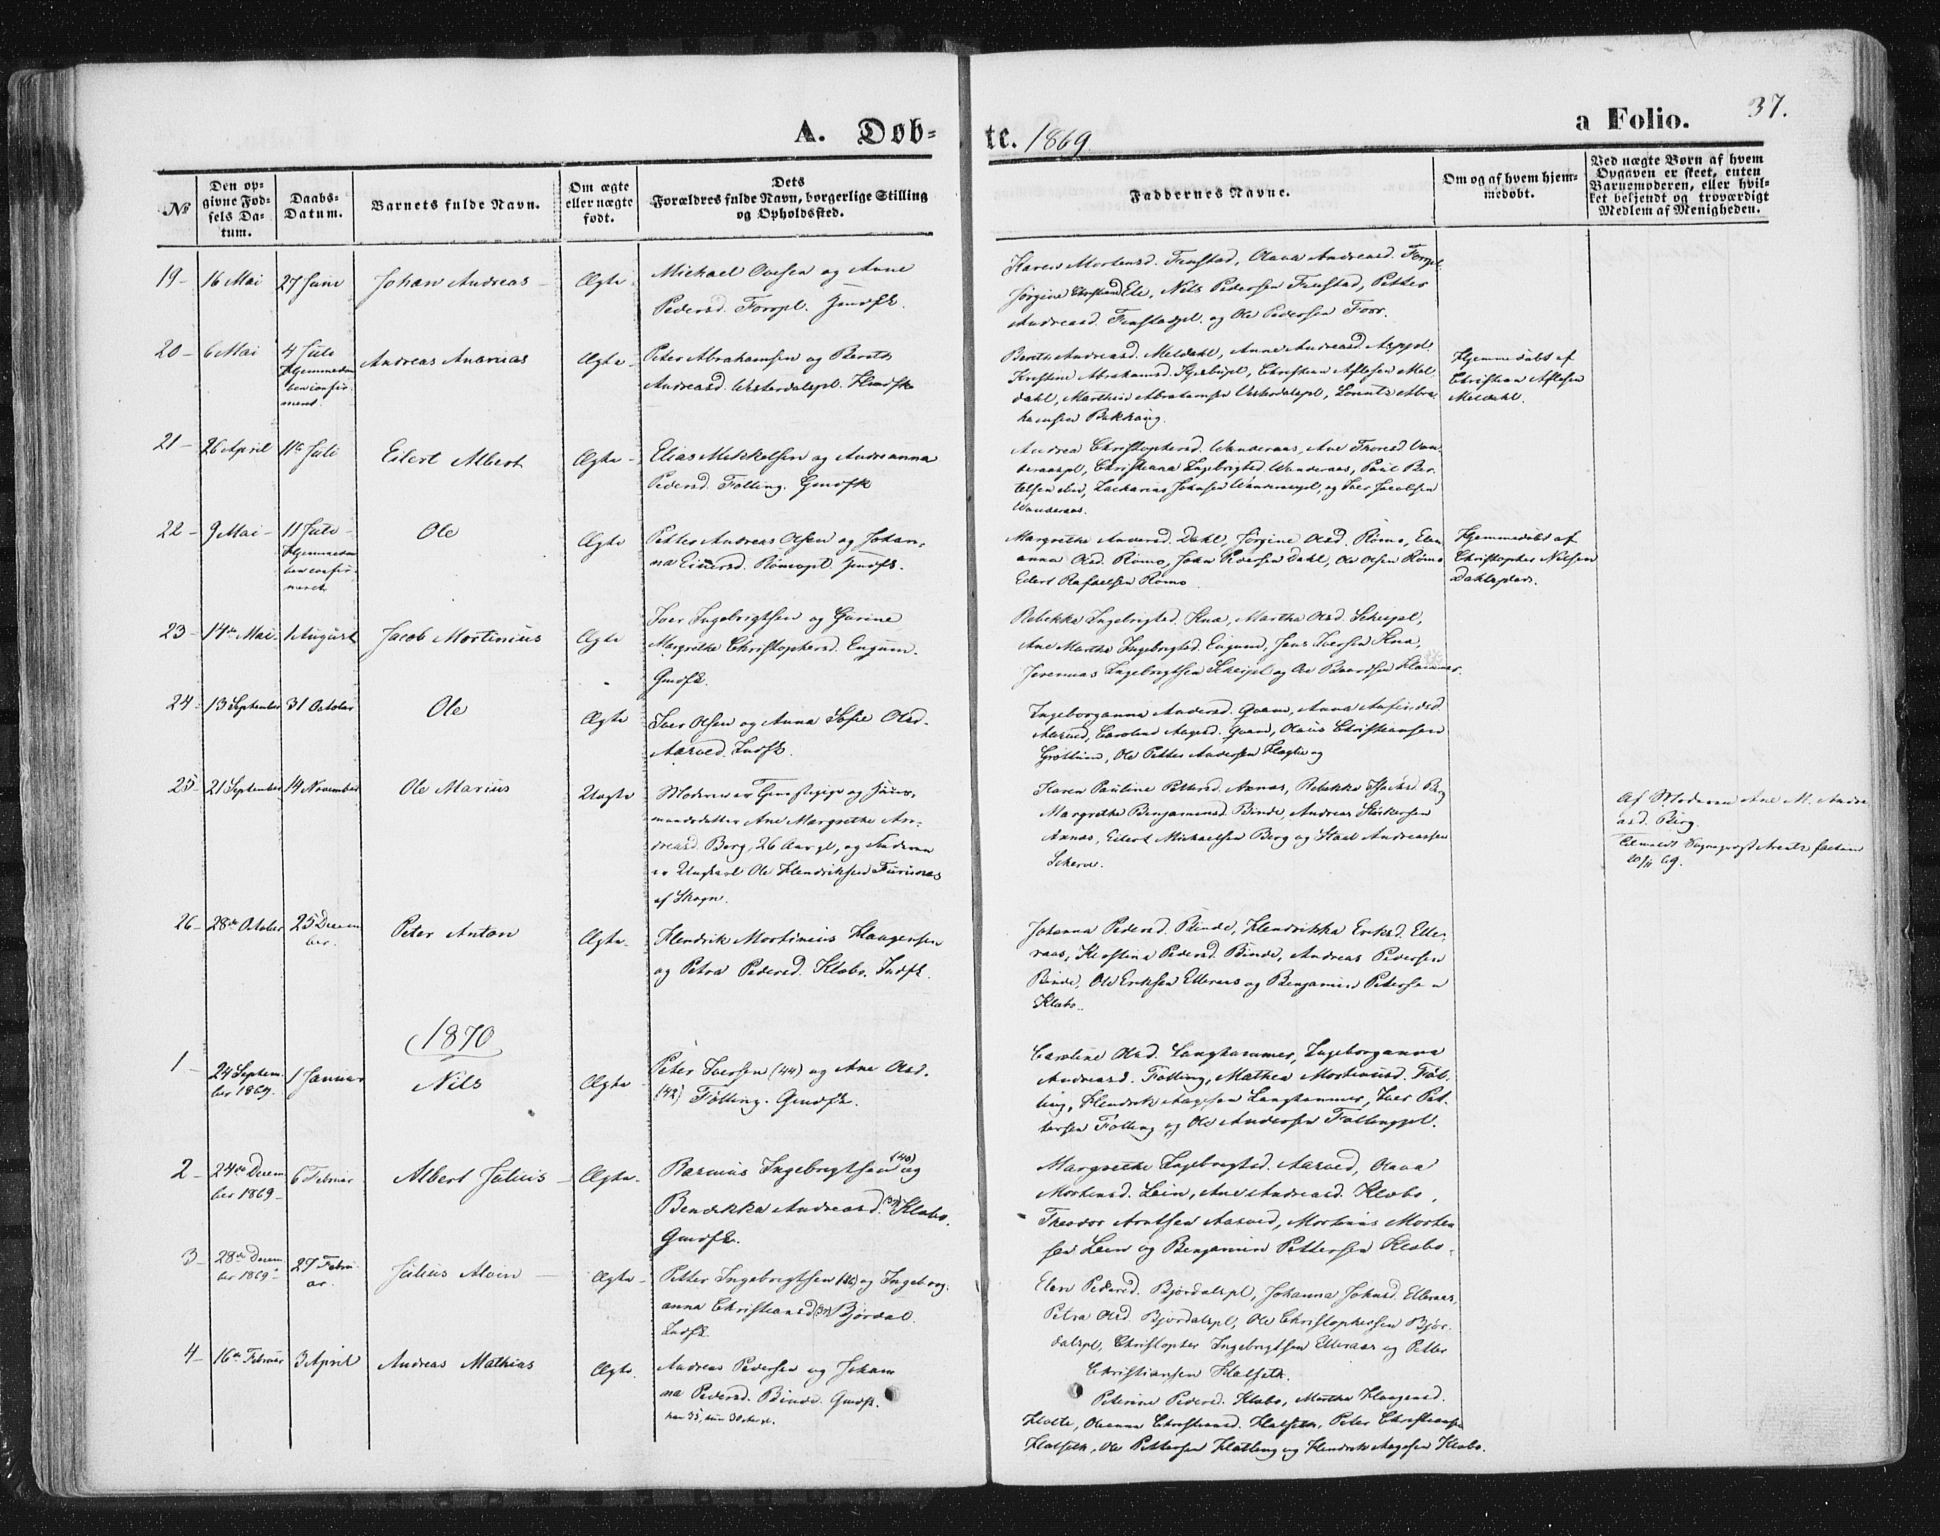 A. Døb-
te. 1869
a Folio. 37.
№
Den op-
givne Fød-
sels Da-
tum.
Daabs-
Datum.
Barnets fulde Navn.
Om ægte
eller uægte
født.
Dets
Forældres fulde Navn, borgerlige Stilling
og Opholdssted.
Faddernes Navne.
Om og af hvem hjem-
medøbt.
Ved uægte Børn af hvem
Opgaven er skeet, enten
Barnemoderen, eller hvil-
ket beljendt og troværdigt
Medlem af Menigheden.
19 - 16 Mai 27 Juni Johan Andreas - Ægte
Michael Ovesen og Anne
Pedersd. Forrpl. Gmdfk.
Karen Mortensd. Finstad, Olava Andreasd. Forrpl.
Jørgine Ele, Nils Pedersen Finstad, Petter
Andreasd. Finstadpl. og Ole Pedersen Forr.
20 - 6 Mai 4 Juli
Hjemmedaa
ben confir
meret.
Andreas Ananias Ægte
Peter Abrahamsen og Bereth
Andreasd. Vesterdalspl. Hmdfk
Bereth Andreasd. Meldahl, Anne Andreasd.
Kristine Abrahamsd. Christian Asflesen Mel
dahl, Marthin Abrahamsen Lorents Abra
hamsen Bakhaug.
Hjemmedøbt af
Christian Asflesen
Meldahl.
21 - 26 April 11te Juli Eilert Albert Ægte -
Elias Mikkelsen og Andreanna
Pedersd. Følling. Gmdfk
Andrea Christophersd. Wanderaas, Ane Thoresd Van
deraaspl, Christiana Ingebrigtsd. Wanderaas, Paul Ber
telsen Zacharias Johnsen og Iver Jacobsen
Wanderaas.
22 - 9 Mai - 11 Juli -
Hjemmedaa
ben confir
meret
Ole Ægte
Petter Andreas Olsen og Johan-
na Einersd. Rømopl. Gmdfk.
Margrethe Andersd. Dahl, Jørgine Olsd. Rømo, Elen
anna Olsd. Rømo, John Iversen Dahl, Ole Olsen Rømo
Eilert Rafaelsen Rømo
Hjemmedøbt af
Christopher Nilsen
Dahlsplads.
23 - 14de Mai. 1 August Jacob Mortinius Ægte
Iver Ingebrigtsen og Gurine
Margrethe Christophersd. Eugum.
Gmdfk.
Rebekka Ingebrigtsd. Kna, Martha Olsd.
Ane Martha Ingebrigtsd. Eugum, Jens Iversen Kna,
Jeremias Ingebrigtsen og Ole Baardsen Hammer.
24 - 13 September 31 October Ole Ægte
Iver Olsen og Anna Sofie Olsd.
Aasved. Indfk.
Ingeborganna Andersd. Qvam, Anna
Aasved, Caroline Aagesd. Qvam, Olaus Christiansen
Grøttum, Ole Petter Andersen
25 - 21 September 14 November Ole Marius Uægte
Moderen er Tjenestepige og Huus-
mandsdatter Ane Margrethe An-
dreasd. Berg, 26 Aar gl, og Faderen
er Ungkarl Ole Hendriksen Furunes
af Skogn.
Karen Pauline Pettersd. Axnæs, Rebekka Isachsd. Berg
Margrethe Benjaminsd. Binde, Andreas
Axnæs, Eilert Michaelsen Berg og Andreassen
Af Moderen Ane M. Andre
asd. Berg.
20/11 69.
26 - 28de October 25 Decem
ber.
Peter Anton Ægte
Hendrik Mortinius Haagensen
og Petra Pedersd. Klabo. Indfk.
Johanna Pedersd. Binde, Hendrikka Eriksd. Elle-
raas, Kirstina Pedersd. Binde, Andreas Pedersen
Binde, Ole Eriksen Elleraas og Benjamin Petersen
Klabo.
1870
1 - 24 Septem
ber 1869. 1 Januar Nils Ægte
Peter Iversen (44) og Ane Olsd.
(42) Følling. Gmdfk.
Caroline Olsd. Langhammer, Ingeborganna
Andreasd. Følling, Mathea Mortinusd. Føl-
ling, Hendrik Aagesen Langhammer, Iver Pet-
tersen Følling og Ole Andersen Føllingpl.
2 - 24de Decem
ber 1869 - 6 Februar Albert Julius Ægte
Rasmus Ingebrigtsen (40) og
Benedikka Andreasd. Klabo.
Gmdfk.
Margrethe Ingebrigtsd. Aasved, Olava
Mortensd. Lein, Ane Andreasd. Klabo,
Theodor Arntsen Aasved, Mortinus Morten
sen Lein og Benjamin Pettersen Klabo.
3 - 28de Decem
ber 1869 - 27 Febru
ar. Julius Alvin Ægte
Petter Ingebrigtsen og Ingeborg-
anna Christiansd. Bjørdal.
Indfk.
Elen Pedersd. Bjørdalspl, Johanna Johnsd. Elleraas,
Petra Olsd. Bjørdalspl, Ole Christophersen Bjør-
dalspl, Christopher Ingebrigtsen Elleraas og Petter
Christiansen Halseth.
4 - 16de Februar 3 April Andreas Mathias Ægte
Andreas Pedersen og Johan
na Pedersd. Binde. Gmdfk.
han 35, hun 30 Aar gl.
Peterine Pedersd. Klabo, Martha Haagensd.
Oleanna Christiansd. Halseth, Peter Christiansen
Halseth, Ole Pettersen og Hendrik Aagesen Klabo.